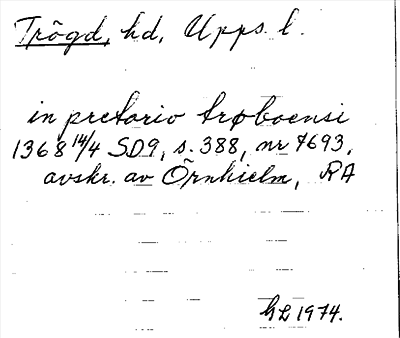 Trögd, hd, Upps. l.
in pretorio trøboensi
1368 14/4 SD9, s. 388, nr 7693,
avskr. av Örnhielm, RA
GL 1974.